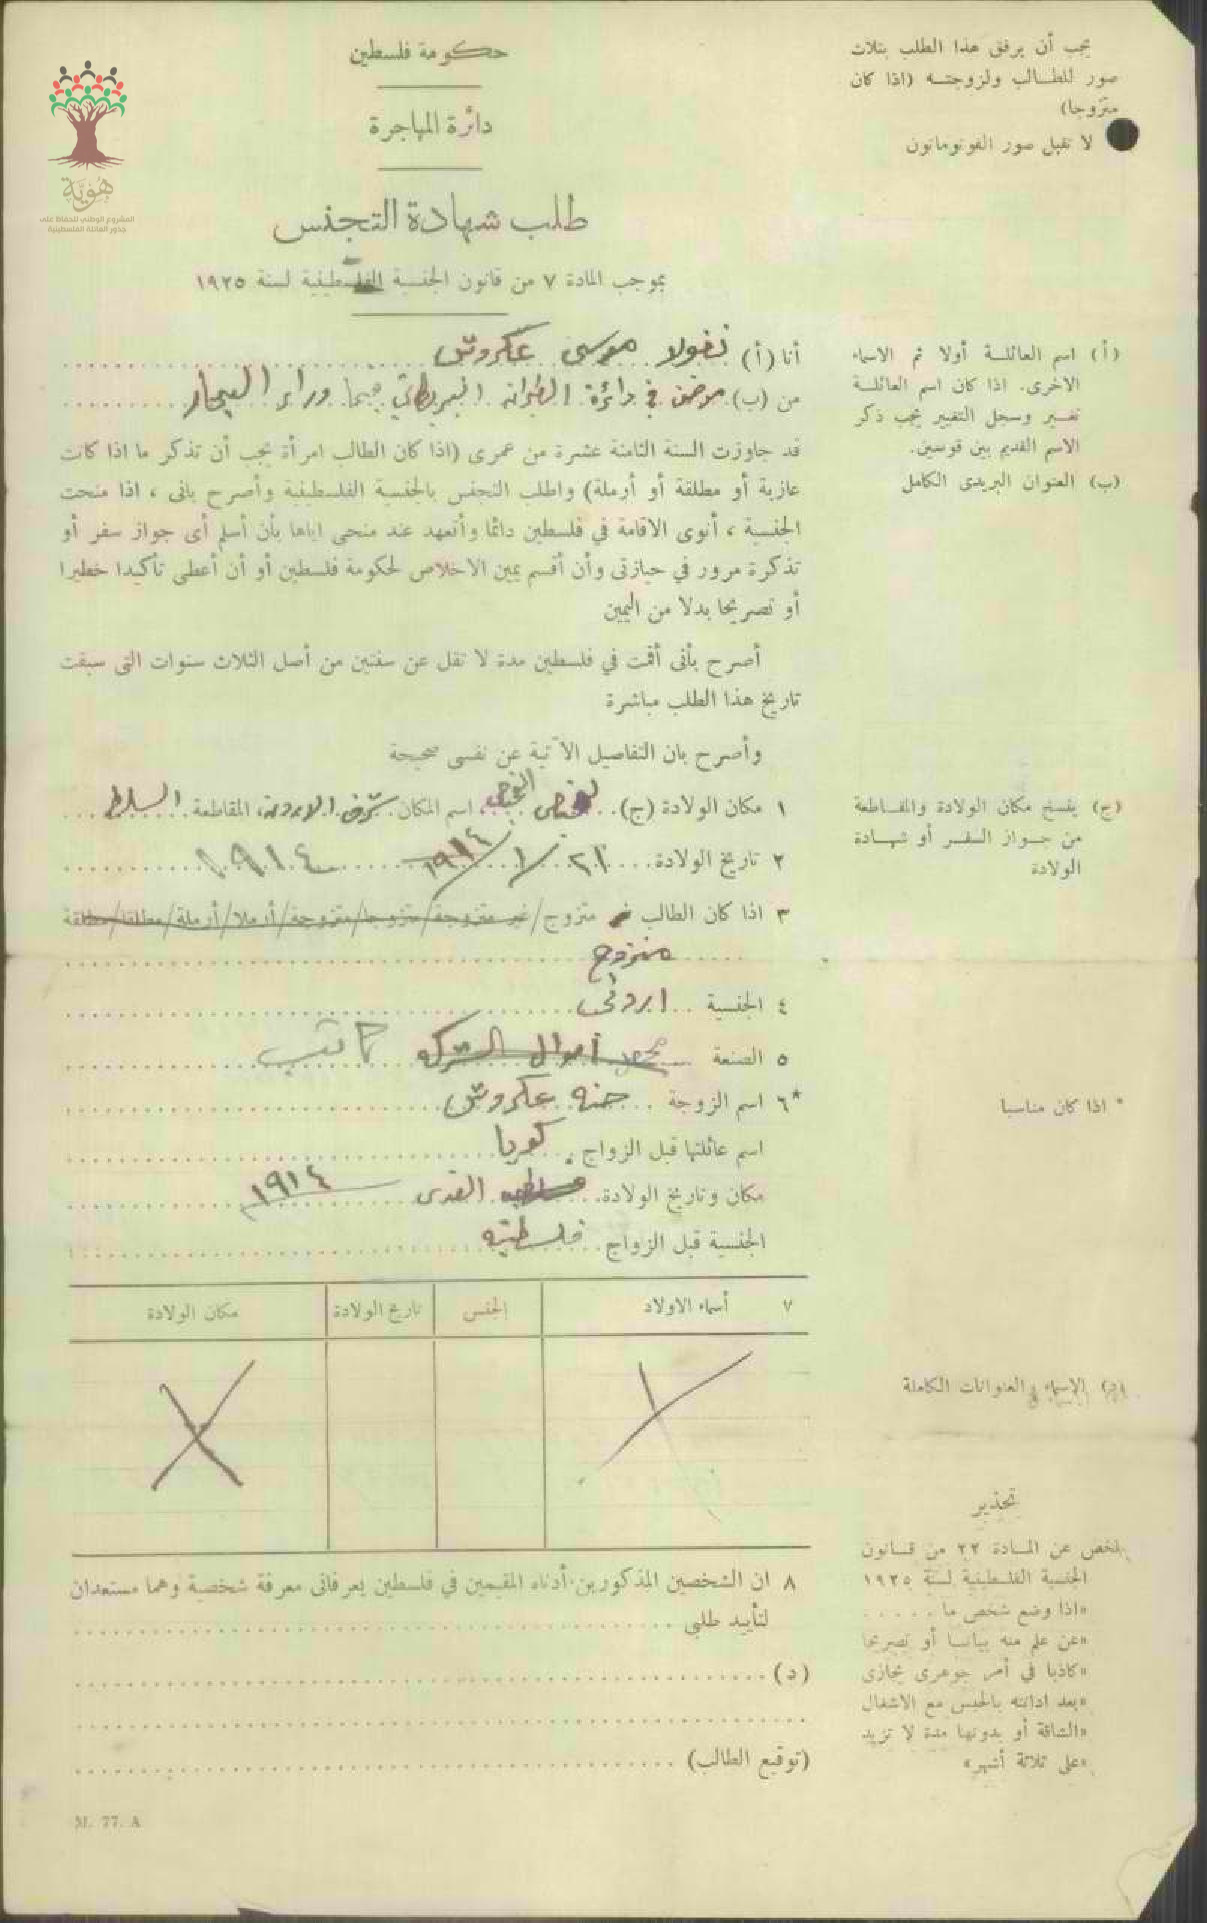 حكومة فلسطين
دائرة المهاجرة
طلب شهادة التجنس
بموجب المادة ٧ من قانون الجنسية الفلسطينية لسنة ١٩٢٥
يجب أن يرفق هذا الطلب بثلاث
صور للطالب ولزوجته (اذا كان
متزوجا)
لا تقبل صور الفوتوماتون
هُوِيَّة
المشروع الوطني للحفاظ على
جذور العائلة الفلسطينية
أنا (أ) نقولا موسى عكروش
من (ب) موظف في دائرة الطيران البريطاني فيما وراء البحار
قد جاوزت السنة الثامنة عشرة من عمرى (اذا كان الطالب امرأة يجب أن تذكر ما اذا كانت
عازبة أو مطلقة أو أرملة) واطلب التجنس بالجنسية الفلسطينية وأصرح بانى ، اذا منحت
الجنسية ، أنوى الاقامة في فلسطين دائما وأتعهد عند منحى اياها بأن أسلم أى جواز سفر أو
تذكرة مرور في حيازتى وأن أقسم يمين الاخلاص لحكومة فلسطين أو أن أعطى تأكيدا خطيرا
أو تصريحا بدلا من اليمين
أصرح بأنى أقمت في فلسطين مدة لا تقل عن سنتين من أصل الثلاث سنوات التى سبقت
تاريخ هذا الطلب مباشرة
وأصرح بان التفاصيل الآتية عن نفسى صحيحة
١ مكان الولادة (ج) الفحيص اسم المكان شرق الاردن، المقاطعة السلط
٢ تاريخ الولادة ٢١/١/١٩١٤ ١٩١٤
٣ اذا كان الطالب متزوج/غير متزوجة/متزوجا/متزوجة/أرملا/أرملة/مطلقا/مطلقة
متزوج
٤ الجنسية اردني
٥ الصنعة أموال الترك كاتب
*٦ اسم الزوجة حنه عكروش
اسم عائلتها قبل الزواج
مكان وتاريخ الولادة القدس ١٩١٤
الجنسية قبل الزواج فلسطينيه
٧ أسماء الاولاد الجنس تاريخ الولادة مكان الولادة
٨ ان الشخصين المذكورين أدناه المقيمين في فلسطين يعرفانى معرفة شخصية وهما مستعدان
لتأييد طلبى
(د)
(توقيع الطالب)
M. 77. A
(أ) اسم العائلة أولا ثم الاسماء
الاخرى. اذا كان اسم العائلة
تغير وسجل التغيير يجب ذكر
الاسم القديم بين قوسين.
(ب) العنوان البريدى الكامل
(ج) ينسخ مكان الولادة والمقاطعة
من جواز السفر أو شهادة
الولادة
* اذا كان مناسبا
الاسماء و العنوانات الكاملة
تحذير
ملخص عن المادة ٢٢ من قانون
الجنسية الفلسطينية لسنة ١٩٢٥
«اذا وضع شخص ما
«عن علم منه بيانا أو تصريحا
«كاذبا في أمر جوهرى يجازى
«بعد ادانته بالحبس مع الاشغال
«الشاقة أو بدونها مدة لا تزيد
«على ثلاثة أشهر»